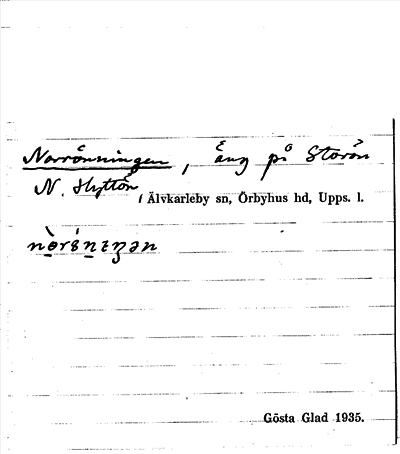 Norrönningen, äng på Storön
N. Hyttön
i Älvkarleby sn, Örbyhus hd, Upps. l.
Gösta Glad 1935.